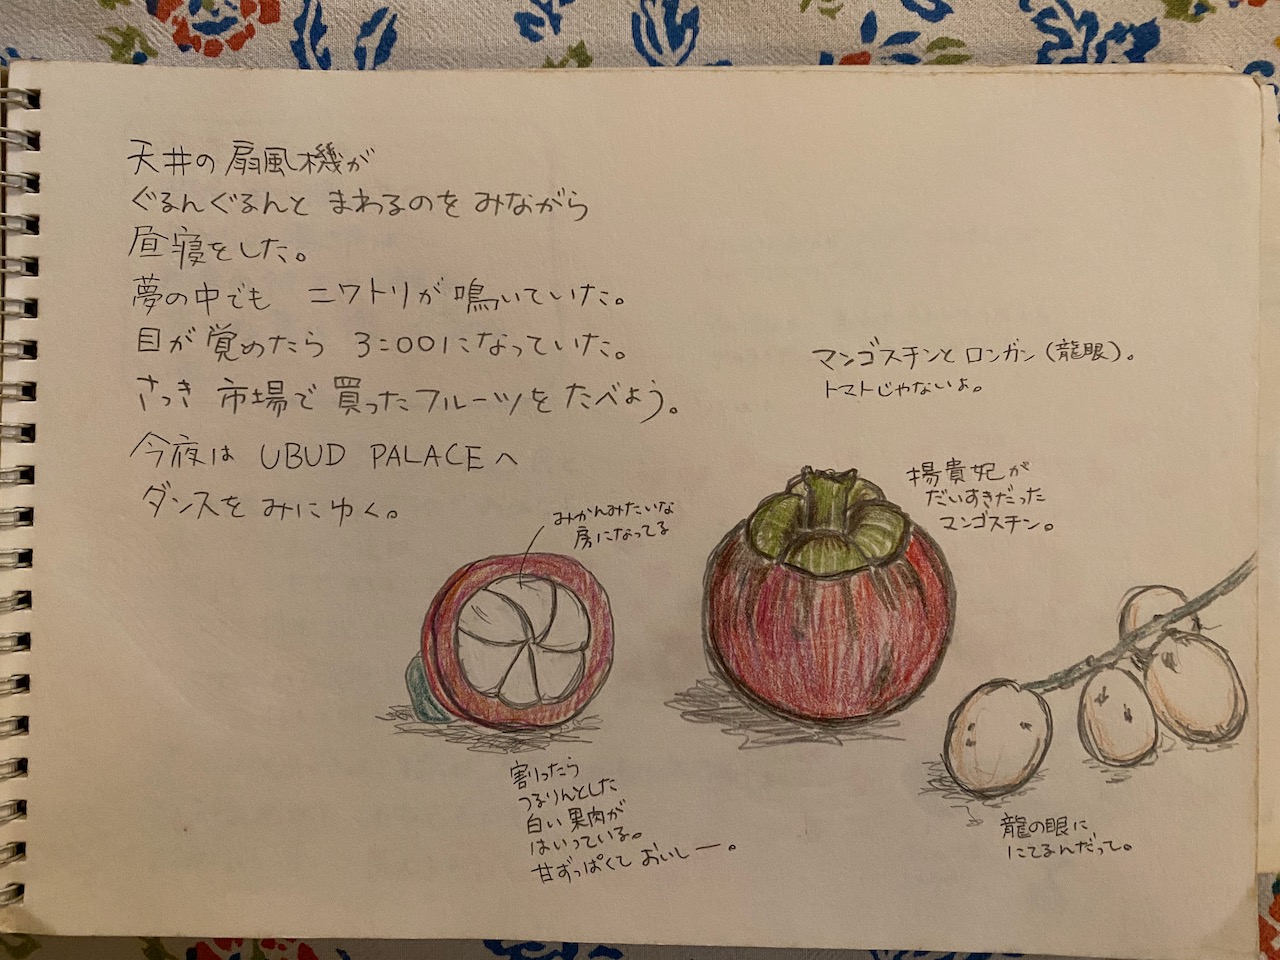 天井の扇風機が
ぐるんぐるんと まわるのを みながら
昼寝をした。
夢の中でも ニワトリが 鳴いていた。
目が覚めたら 3:00になっていた。
さっき 市場で 買ったフルーツを たべよう。
今夜は UBUD PALACEへ
ダンスを みにゆく。
マンゴスチンと ロンガン(龍眼)。
トマトじゃないよ。
みかんみたいな
房になってる
楊貴妃が
だいすきだった
マンゴスチン。
割ったら
つるりんとした
白い果肉が
はいっている。
甘ずっぱくて おいしー。
龍の眼に
にてるんだって。